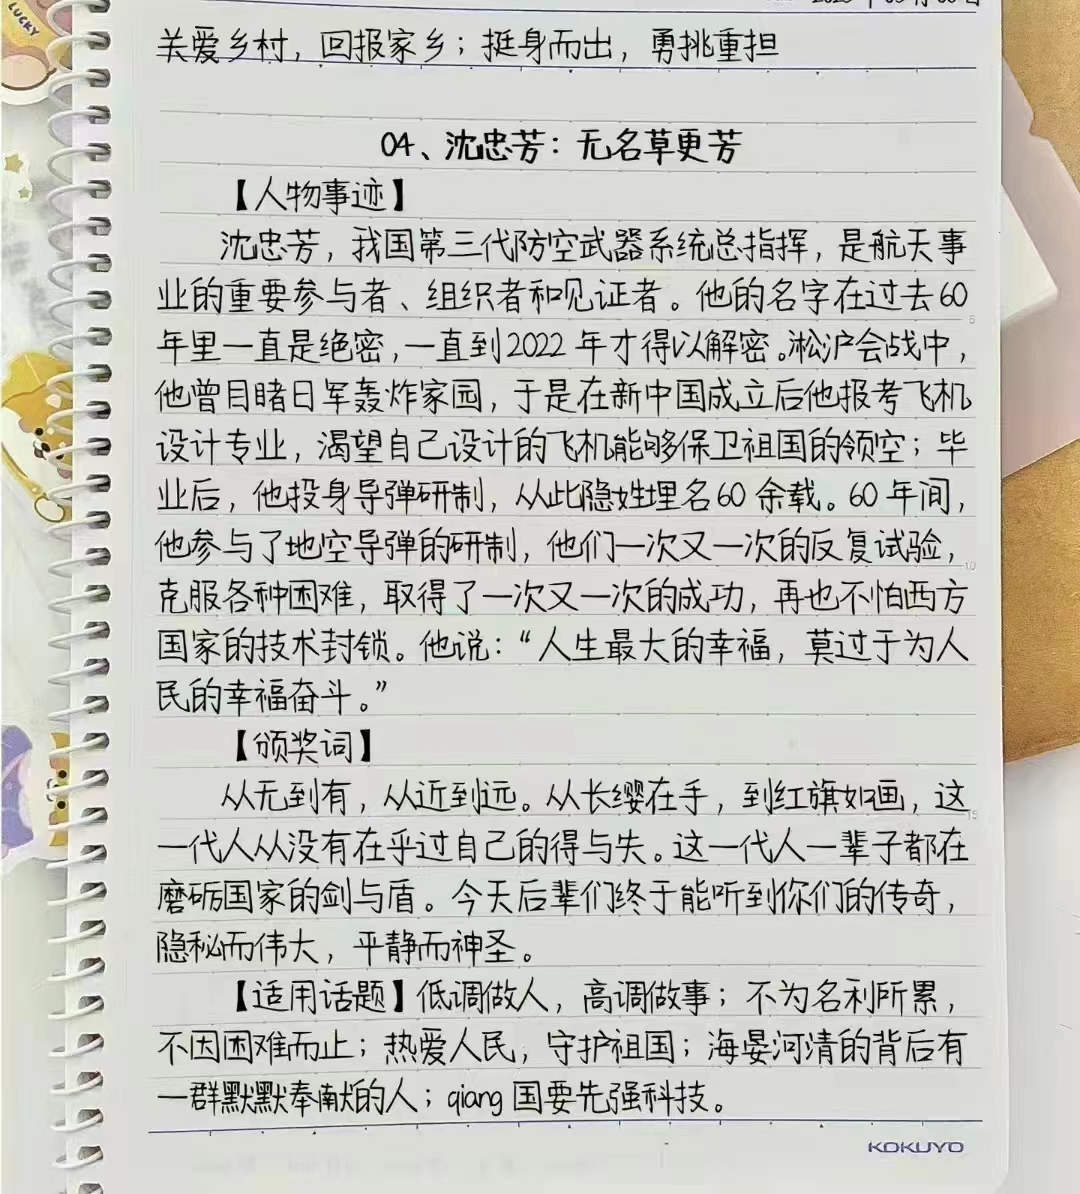 关爱乡村，回报家乡；挺身而出，勇挑重担
04、沈忠芳：无名草更芳
【人物事迹】
沈忠芳，我国第三代防空武器系统总指挥，是航天事
业的重要参与者、组织者和见证者。他的名字在过去60
年里一直是绝密，一直到2022年才得以解密。淞沪会战中，
他曾目睹日军轰炸家园，于是在新中国成立后他报考飞机
设计专业，渴望自己设计的飞机能够保卫祖国的领空；毕
业后，他投身导弹研制，从此隐姓埋名60余载。60年间，
他参与了地空导弹的研制，他们一次又一次的反复试验，
克服各种困难，取得了一次又一次的成功，再也不怕西方
国家的技术封锁。他说：“人生最大的幸福，莫过于为人
民的幸福奋斗。”
【颁奖词】
从无到有，从近到远。从长缨在手，到红旗如画，这
一代人从没有在乎过自己的得与失。这一代人一辈子都在
磨砺国家的剑与盾。今天后辈们终于能听到你们的传奇，
隐秘而伟大，平静而神圣。
【适用话题】低调做人，高调做事；不为名利所累，
不因困难而止；热爱人民，守护祖国；海晏河清的背后有
一群默默奉献的人；qiang国要先强科技。
KOKUYO
LUCKY
5
10
15